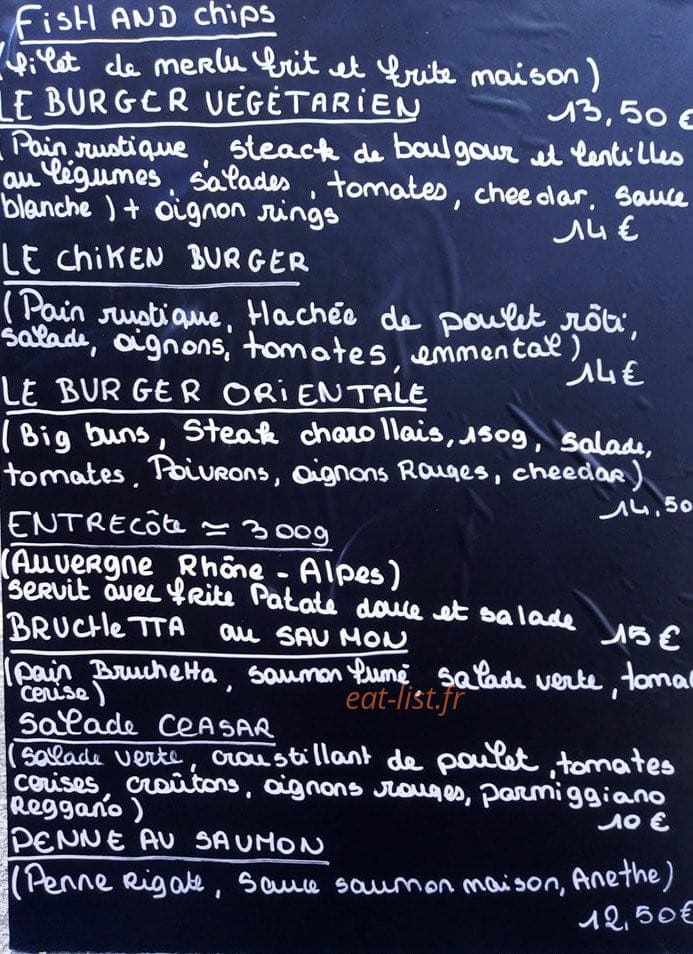 FisH AND chips
(filet de merlu frit et frite maison)
LE BURGER VÉGÉTARiEN 13,50 €
(Pain rustique, steack de boulgour et lentilles
au légumes, salades, tomates, cheedar, sauce
blanche) + oignon rings
14 €
LE CHiKEN BURGER
(Pain rustique, Hachée de poulet rôti,
salade, oignons, tomates, emmental)
14 €
LE BURGER ORiENTALE
(Big buns, Steak charollais, 150g, salade,
tomates, Poivrons, oignons Rouges, cheedar)
14,50
ENTRECôte ≃ 300g
(Auvergne Rhône - Alpes)
servit avec frite Patate douce et salade
15 €
BRUCHETTA au SAUMON
(pain Bruchetta, saumon fumé, salade verte, tomat
cerise)
eat-list.fr
Salade CEASAR
(salade verte, croustillant de poulet, tomates
cerises, croûtons, oignons rouges, parmiggiano
Reggano)
10 €
PENNE AU SAUMON
(Penne Rigate, sauce saumon maison, Anethe)
12,50€